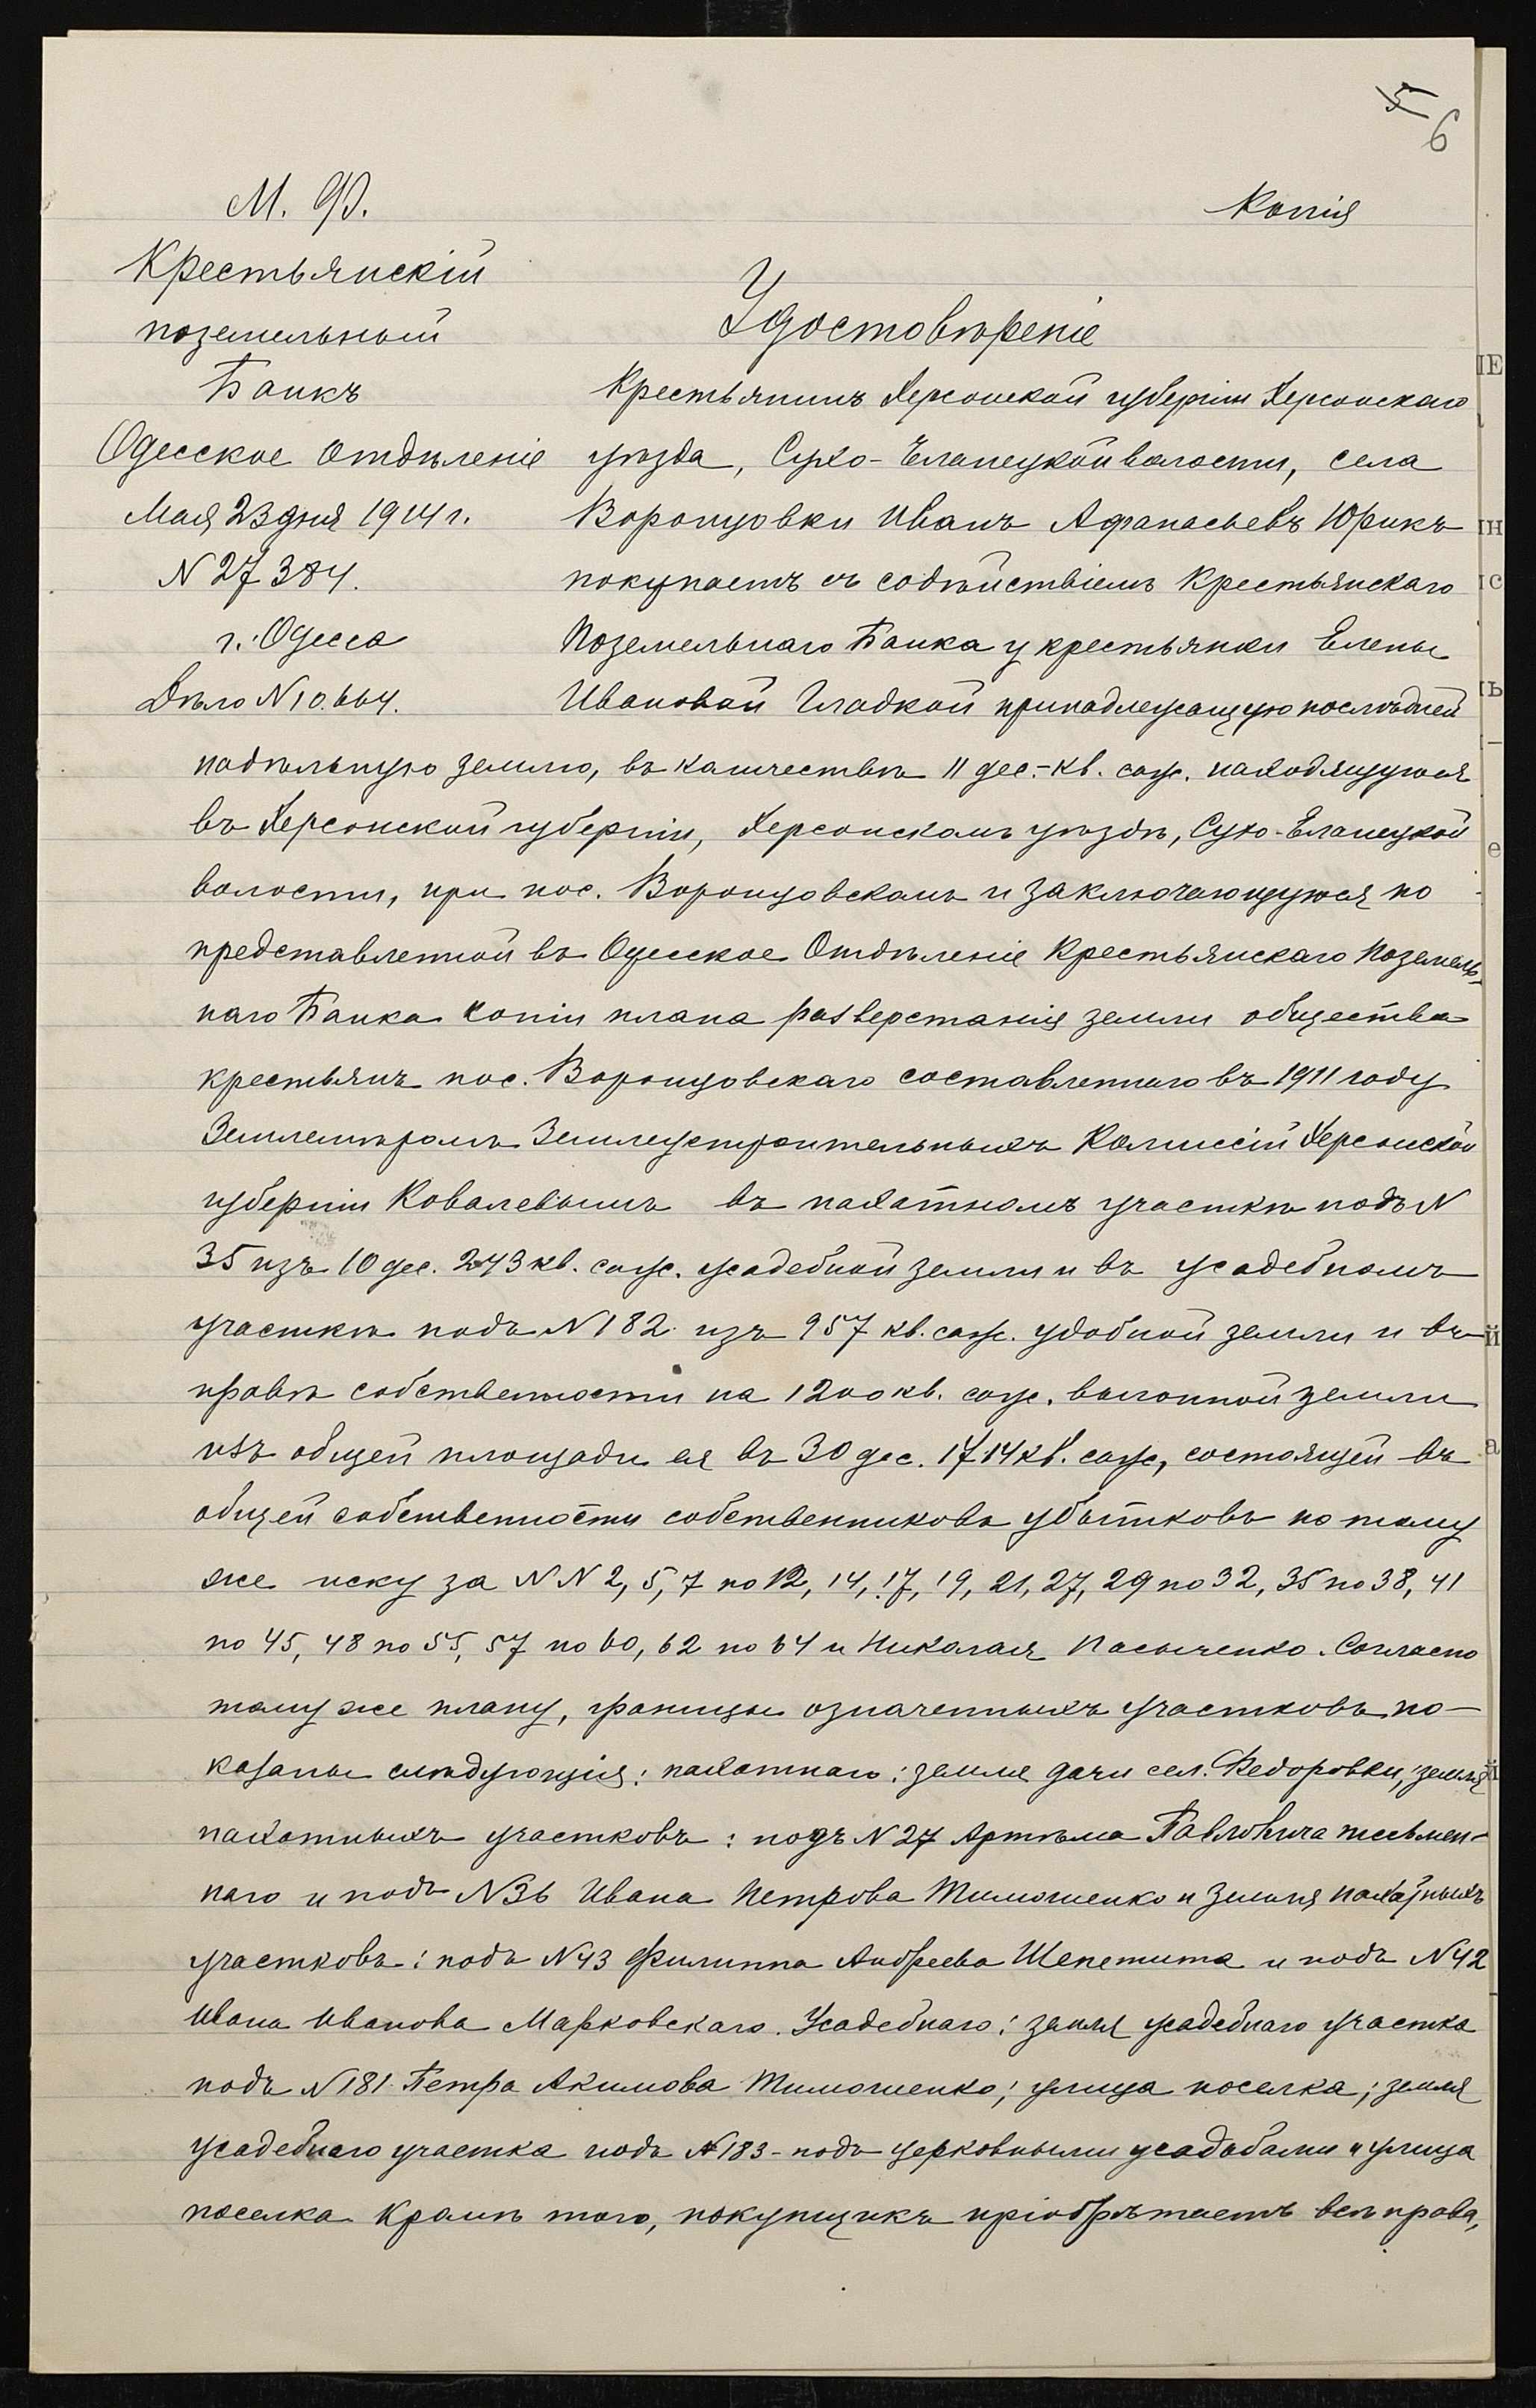 5
6
М. Ф.
Копія
Крестьянскій
поземельный
Банкъ
Одесское Отдѣленіе
Мая 23 дня 1914 г.
N 27384.
г. Одесса
Дѣло N 10.664.
Удостовѣреніе
Крестьянинъ Херсонской губерніи Херсонскаго
уѣзда, Сухо-Еланецкой волости, села
Воронцовки Иванъ Афанасьевъ Юрикъ
покупаетъ съ содѣйствіемъ Крестьянскаго
Поземельнаго Банка у крестьянки Елены
Ивановой Гладкой принадлежащую послѣдней
надѣльную землю, въ количествѣ 11 дес.-кв. саж. находящуюся
въ Херсонской губерніи, Херсонскомъ уѣздѣ, Сухо-Еланецкой
волости, при пос. Воронцовскомъ и заключающуюся по
представленной въ Одесское Отдѣленіе Крестьянскаго Поземель-
наго Банка копіи плана разверстанія земли общества
крестьянъ пос. Воронцовскаго составленнаго въ 1911 году
Землемѣромъ Землеустроительныхъ Комиссій Херсонской
губерніи Ковалевымъ въ пахатномъ участкѣ подъ N
35 изъ 10 дес. 243 кв. саж. усадебной земли и въ усадебномъ
участкѣ подъ N 182 изъ 957 кв. саж. удобной земли и въ
правѣ собственности на 1200 кв. саж. выгонной земли
изъ общей площади ея въ 30 дес. 1714 кв. саж, состоящей въ
общей собственности собственниковъ убытковъ по тому
же иску за N N 2, 5, 7 по 12, 14, 17, 19, 21, 27, 29 по 32, 35 по 38, 41
по 45, 48 по 55, 57 по 60, 62 по 64 и Николая Пасыченко. Согласно
тому же плану, границы означенныхъ участковъ по-
казаны слѣдующія: пахатнаго: земля дачи сел. Федоровки, земля
пахатныхъ участковъ: подъ N 27 Артѣма Павловича письмен-
наго и подъ N 36 Ивана Петрова Тимошенко и земля пахатныхъ
участковъ: подъ N 43 Филиппа Андреева Шепетита и подъ N 42
Ивана Иванова Марковскаго. Усадебнаго: земля усадебнаго участка
подъ N 181 Петра Акимова Тимошенко; улица поселка; земля
усадебнаго участка подъ N 183 - подъ церковными усадьбами и улица
поселка Кромѣ того, покупщикъ пріобрѣтаетъ всѣ права,